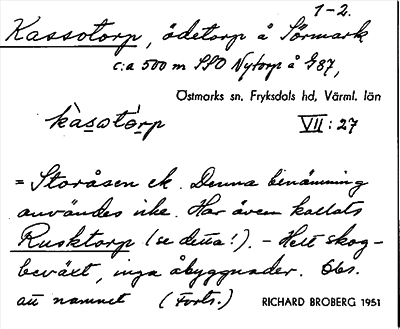 1-2.
Kassotorp, ödetorp å Sörmark
c:a 500 m SSO Nytorp å G87,
Östmarks sn, Fryksdals hd, Värml. län
kàsotòrp VII : 27
= Storåsen ek. Denna benämning
användes icke. Har även kallats
Rusktorp (se detta!). - Helt skog-
beväxt, inga åbyggnader. Obs.
att namnet (Forts.) RICHARD BROBERG 1951